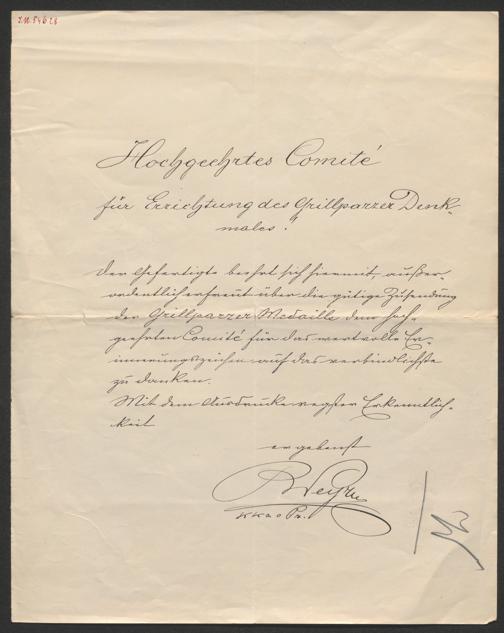 I.N. 54628
Hochgeehrtes Comité
für Errichtung des Grillparzer Denk-
males!
Der Gefertigte beehrt sich hiermit, außer-
ordentlich erfreut über die gütige Zusendung
der Grillparzer Medaille dem hoch-
geehrten Comité für das wertvolle Er-
innerungszeichen auf das verbindlichste
zu danken.
Mit dem Ausdrucke regster Erkenntlich-
keit
ergebenst
RWeyr